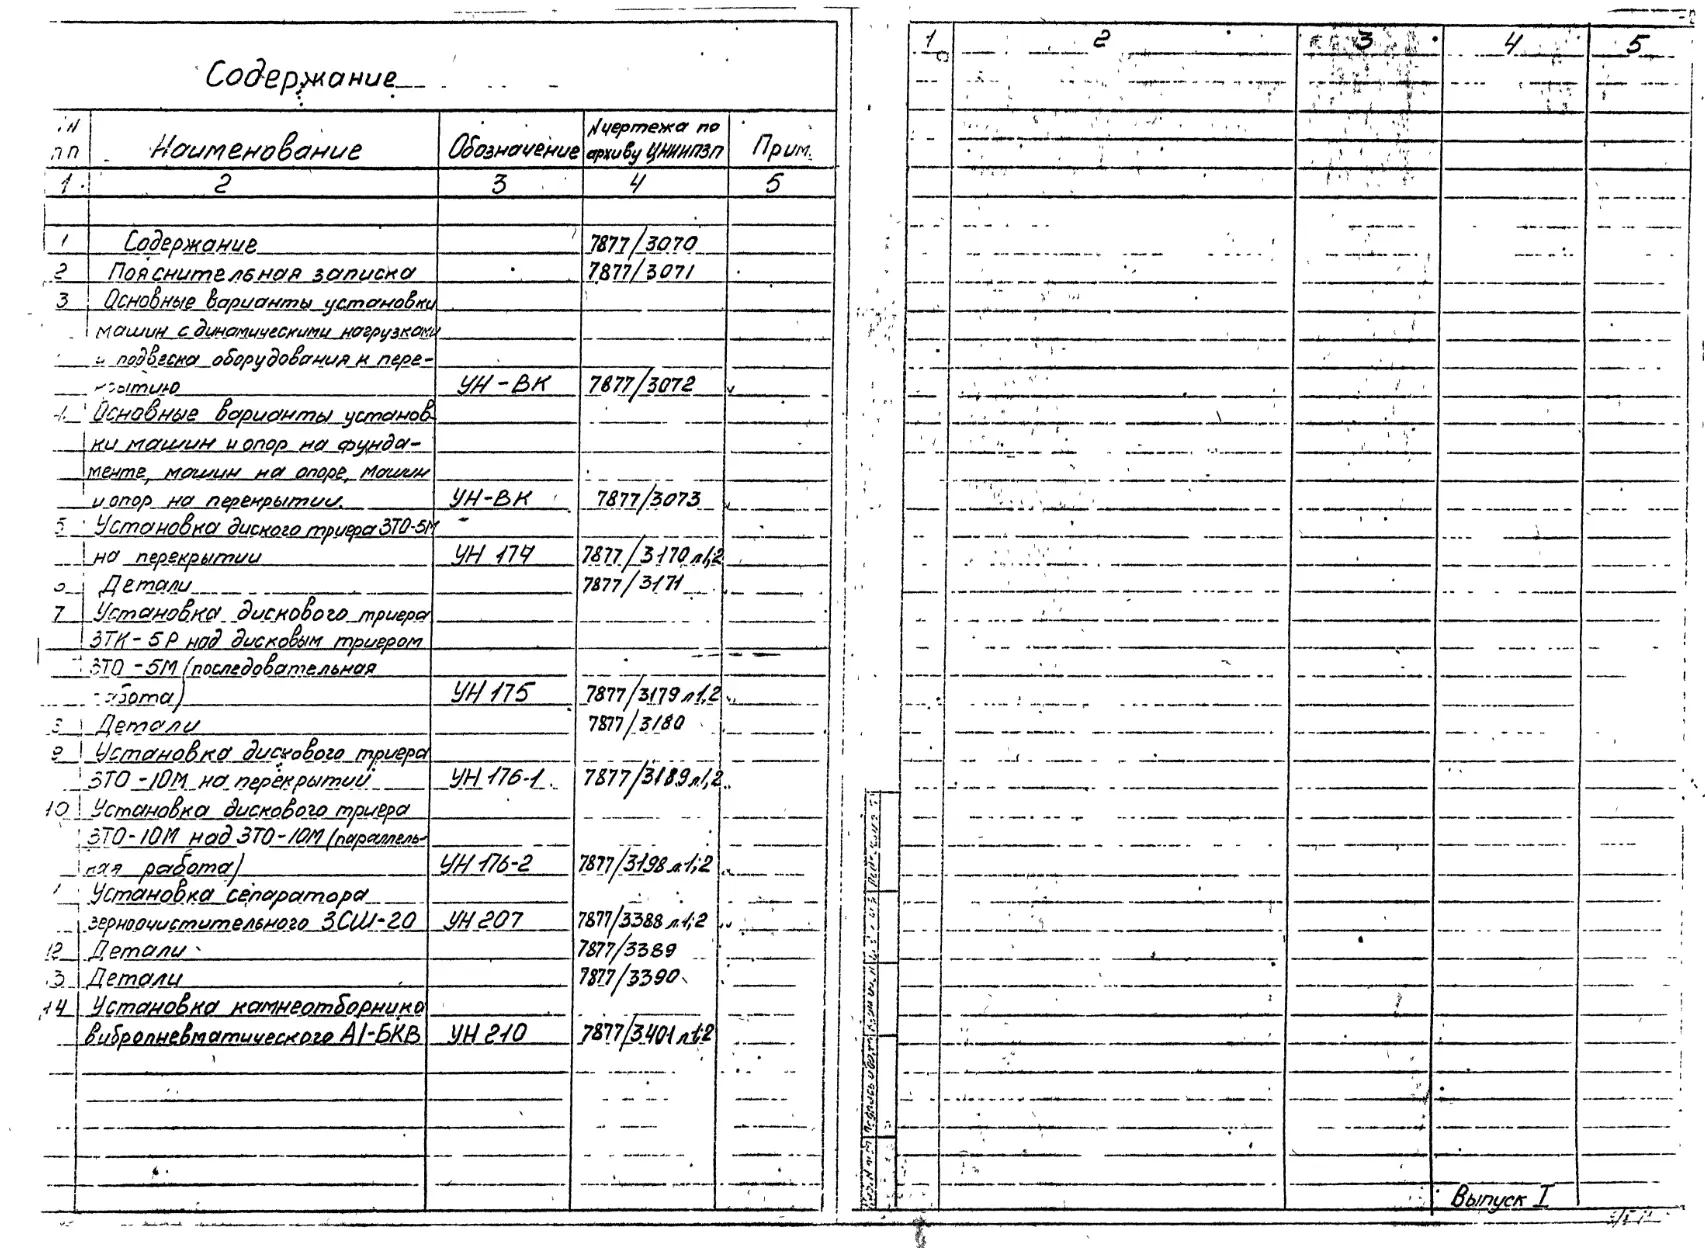 Содержание
N пп Наименование Обозначение N чертежа по архиву ЦНИИПЗП Прим.
1 2 3 4 5
1 Содержание 7877/3070
2 Пояснительная записка 7877/3071
3 Основные варианты установки
машин с динамическими нагрузками
и подвеска оборудования к пере-
крытию УН-ВК 7877/3072
4. Основные варианты установ
ки машин и опор на фунда-
менте, машин на опоре, машин
и опор на перекрытии. УН-ВК 7877/3073
5 Установка диского триера ЗТО-5М
на перекрытии УН 174 7877/3170 л1,2
Детали 7877/3171
7 Установка дискового триера
ЗТК-5Р над дисковым триером
ЗТО-5М (последовательная
работа) УН 175 7877/3179 л1,2
8 Детали 7877/3180
9 Установка дискового триера
ЗТО-10М на перекрытии УН 176-1 7877/3189 л1,2
10 Установка дискового триера
ЗТО-10М над ЗТО-10М (параллель-
ная работа) УН 176-2 7877/3198 л.1;2
Установка сепаратора
зерноочистительного ЗСШ-20 УН 207 7877/3388 л.1;2
12 Детали 7877/3389
13 Детали 7877/3390
14 Установка камнеотборника
вибропневматического А1-БКВ УН 210 7877/3401 л1;2
1 2 3 4 5
Выпуск I